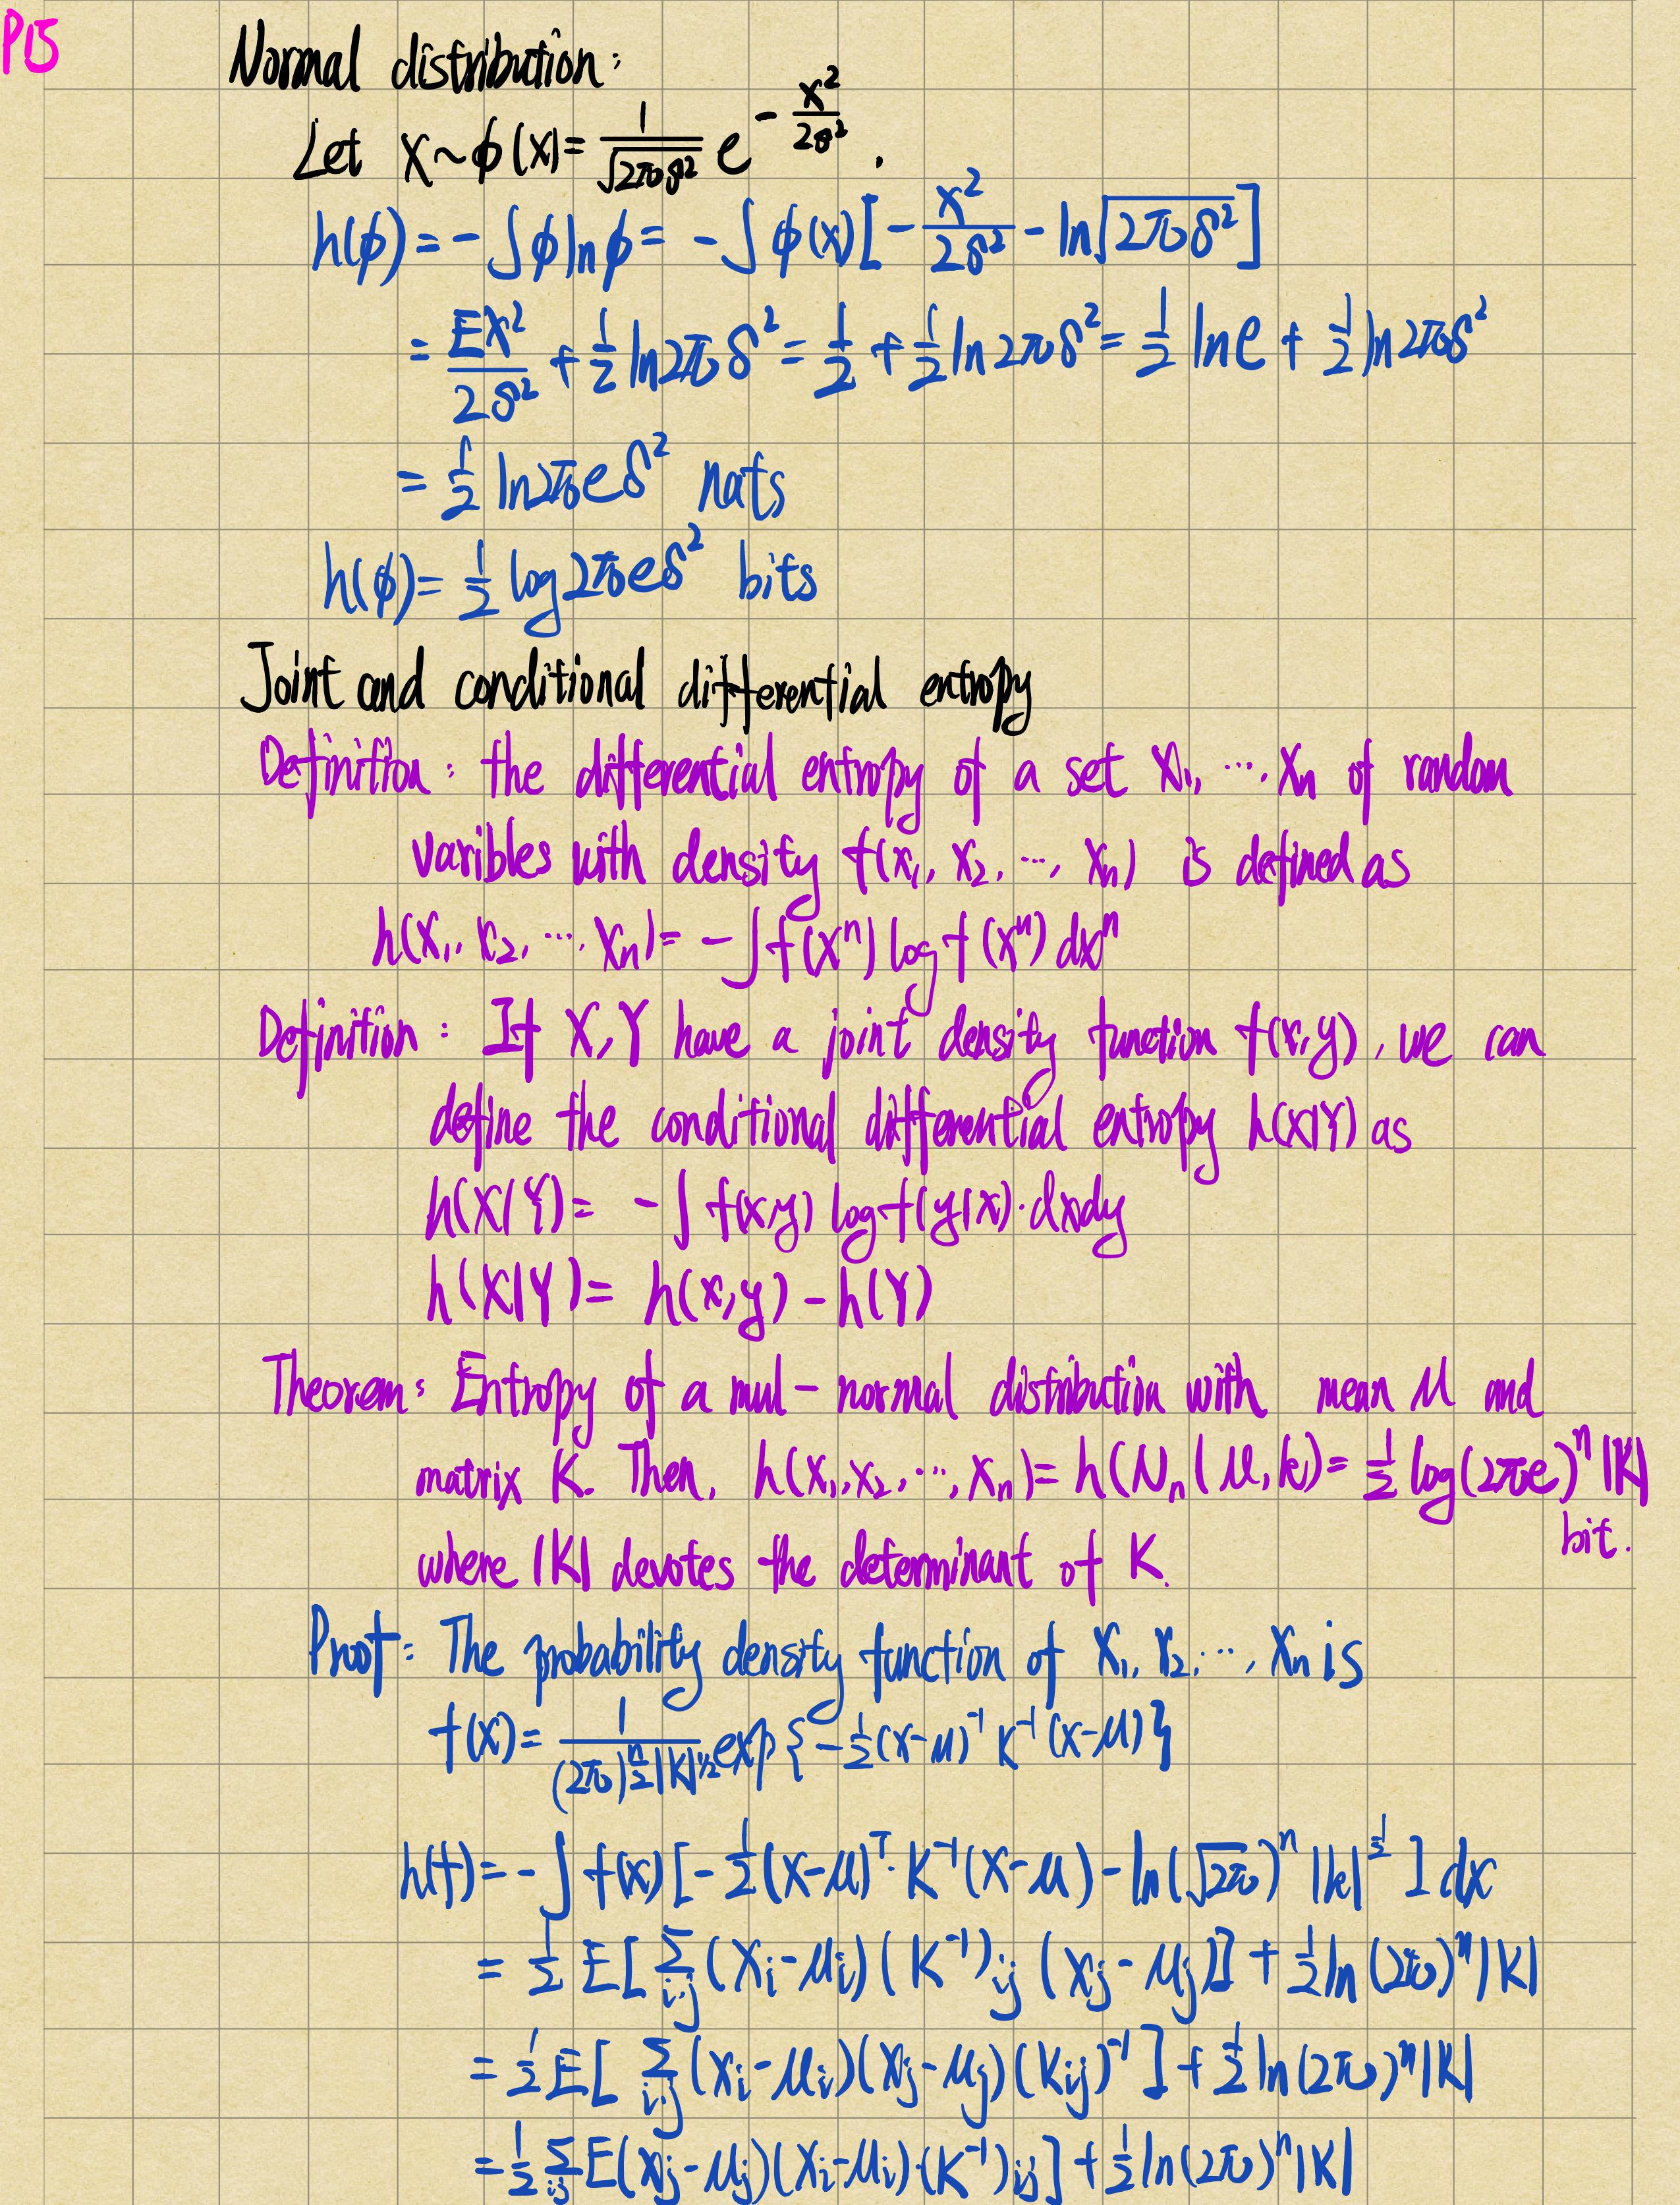 P15
Normal distribution:
Let X~ϕ(x)= 1/√(2πδ²) e^(-x²/2δ²).
h(ϕ)=-∫ϕlnϕ= -∫ϕ(x)[-x²/2δ² - ln√(2πδ²)]
= EX²/2δ² + 1/2 ln2πδ² = 1/2 + 1/2 ln2πδ² = 1/2 lne + 1/2 ln2πδ²
= 1/2 ln2πeδ² nats
h(ϕ)= 1/2 log2πeδ² bits
Joint and conditional differential entropy
Definition: the differential entropy of a set X₁, ···, Xn of random
varibles with density f(x₁, x₂, ···, xn) is defined as
h(X₁, X₂, ···, Xn)= -∫f(xⁿ) log f(xⁿ) dxⁿ
Definition: If X,Y have a joint density function f(x,y), we can
define the conditional differential entropy h(X|Y) as
h(X|Y)= -∫ f(x,y) log f(y|x)·dxdy
h(X|Y)= h(x,y)-h(Y)
Theorem: Entropy of a mul-normal distribution with mean μ and
matrix K. Then, h(x₁,x₂,···,xn)= h(Nn(μ,k)= 1/2 log(2πe)ⁿ|K|
bit.
where |K| devotes the determinant of K.
Proof: The probability density function of X₁, X₂, ···, Xn is
f(x)= 1/((2π)^(n/2)|K|^(1/2)) exp{-1/2(x-μ)⁻¹K⁻¹(x-μ)}
h(f)=-∫f(x)[-1/2(x-μ)ᵀ·K⁻¹(x-μ)-ln(√2π)ⁿ|k|^(1/2)]dx
= 1/2 E[∑i,j (Xi-μi)(K⁻¹)ij(xj-μj)]+1/2 ln(2π)ⁿ|K|
= 1/2 E[∑i,j (xi-μi)(xj-μj)(Kij)⁻¹]+1/2 ln(2π)ⁿ|K|
= 1/2 ∑i,j E(xj-μj)(xi-μi)·(K⁻¹)ij]+1/2 ln(2π)ⁿ|K|